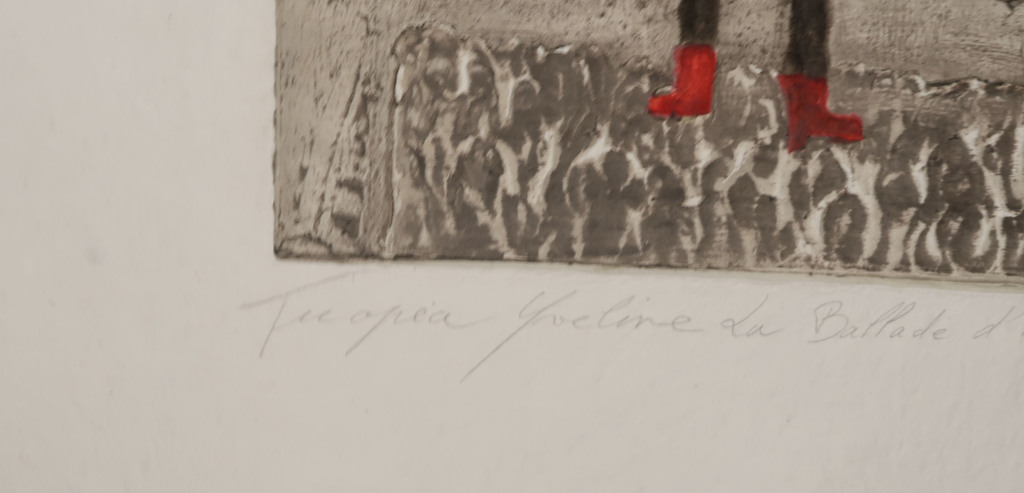 Tuopéa Yveline La Ballade d'